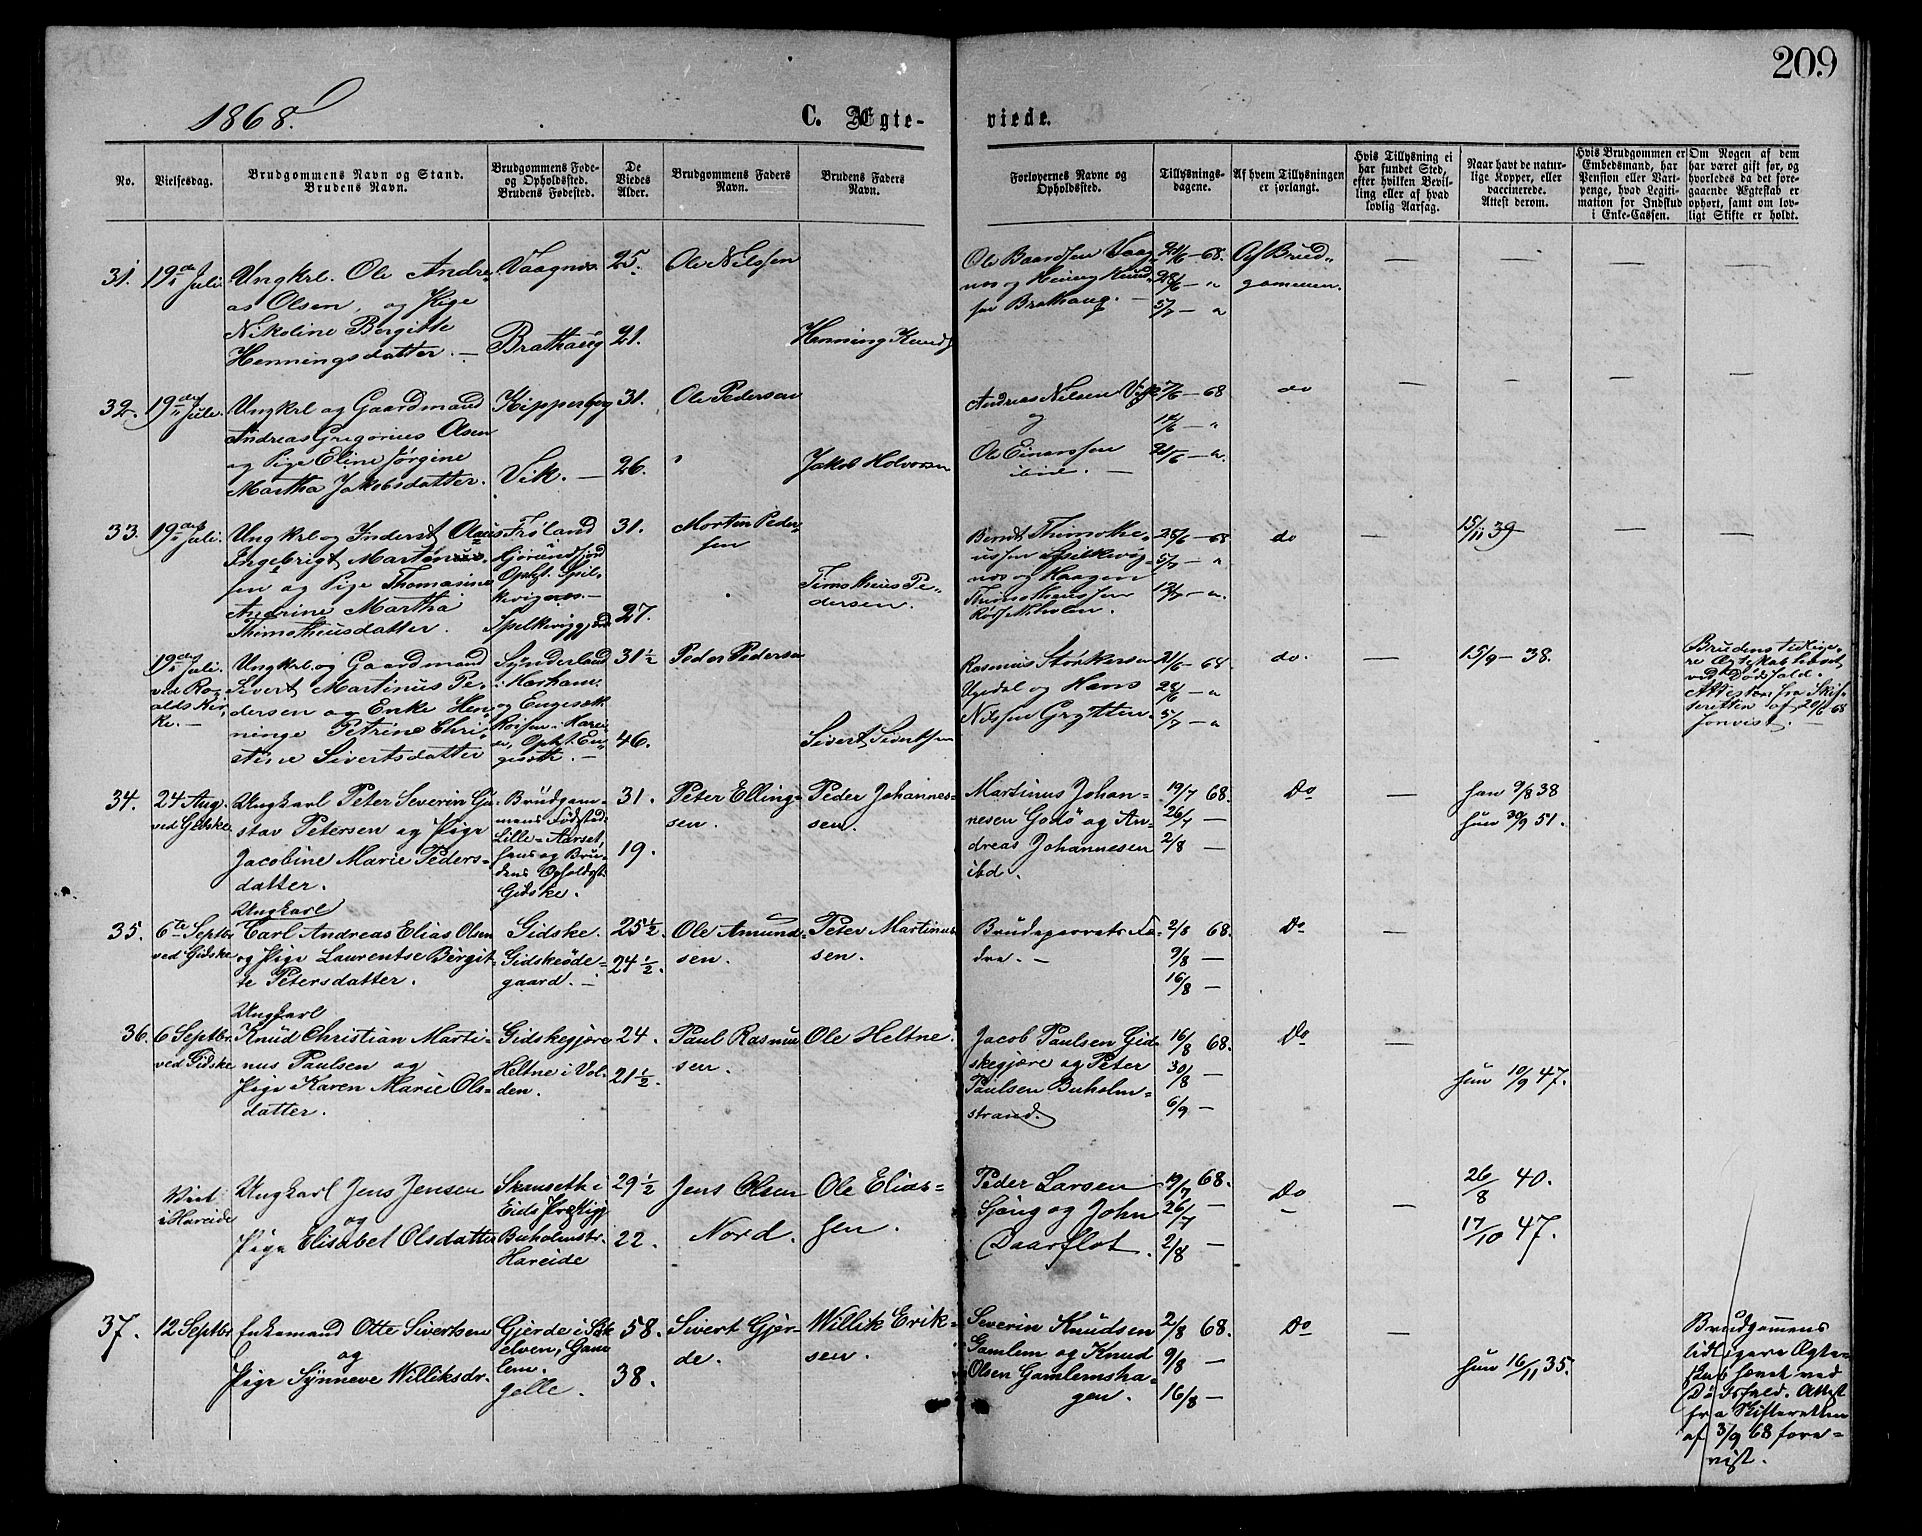 209
1868.
C. Ægte-
viede.
No.
Vielsesdag.
Brudgommens Navn og Stand.
Brudens Navn.
Brudgommens Føde-
og Opholdssted.
Brudens Fødested.
De
Viedes
Alder.
Brudgommens Faders
Navn.
Brudens Faders
Navn.
Forlovernes Navne og
Opholdssted.
Tillysnings-
dagene.
Af hvem Tillysningen
er forlangt.
Hvis Tillysning ei
har fundet Sted,
efter hvilken Bevil-
ling eller af hvad
lovlig Aarsag.
Naar havt de natur-
lige Kopper, eller
vaccinerede.
Attest derom.
Hvis Brudgommen er
Embedsmand, har
Pension eller Vart-
penge, hvad Legiti-
mation for Indskud
i Enke-Cassen.
Om Nogen af dem
har været gift før, og
hvorledes da det fore-
gaaende Ægteskab er
ophørt, samt om lov-
ligt Skifte er holdt.
31.
19de Juli.
Ungkrl. Ole Andre-
as Olsen, og Pige
Nikoline Bergitte
Henningsdatter. —
Vaagnes
Brathaug
25.
21.
Ole Nilssen
Henning Knuds
Ole Baardsen Vaag-
nes og Hening Knud-
sen Brathaug. —
21/6 — 68.
28/6 — "
5/7 — "
Af Brud-
gommen.
—
—
—
—
32.
19de Juli.
Ungkrl og Gaardmand
Andreas Gregorius Olsen
og Pige Eline Jørgine
Martha Jakobsdatter.
Kipperberg
Vik. —
31.
26.
Ole Pedersen
Jakob Holvorsen
Andreas Nilsen
og
Ole Einarssen
ibid. —
7/6 — 68
14/6 — "
21/6 — "
do
—
—
—
—
33.
19de Juli.
Ungkrl og Inderst Olaus
Ingebrigt Martinus-
sen og Pige Thomasine
Andrine Martha
Thimotheusdatter.
Frøland
Hjørundfjord
Opht. Spil-
kevignes —
Spelkevig
31.
27.
Morten Peder-
sen
Timotheus Pe-
dersen.
Berndt Thimothe-
ussen Spilkevig-
nes og Haagen
Thimotheussen
28/6 — 68
5/7 — "
12/7 — "
do
—
15/11 39
—
—
19de Juli.
ved Ro-
alds Kir-
ke. —
Ungkrl. og Gaardmand
Sivert Martinus Pe-
dersen og Enke Hen-
ninge Petrine Chri-
stine Sivertsdatter
Synderland
i Harham
og Engeseth
Opht. En-
geseth. —
31 1/2
46.
Peder Pedersen
Sivert Sivertssen
Rasmus Størkersen
Ugedal og Hans
Nilssen Grytten
21/6 — 68
28/6 — "
5/7 — "
do.
—
15/9 — 38.
Brudens tidlige-
re Ægteskab hævet
ved Dødsfald.
Attest fra Skif-
teretten af 20/6 68
forevist. —
34.
24 Aug.
ved Gidske
Ungkarl Peter Severin Gu-
stav Petersen og Pige
Jacobine Marie Peders-
datter.
Brudgom-
mens Fødsted
Lille-Aarset,
hans og Bru-
dens Opholdst.
Gidske.
31.
19.
Peter Elling-
sen.
Peder Johannes-
sen.
Martinus Johan-
nesen Godø og An-
dreas Johannesen
ibd.
19/7 68.
26/7 —
2/8 —
Do
—
han 9/8 38
hun 30/9 51.
35.
6te Septbr
ved Gidske
Ungkarl
Carl Andreas Elias Olsen
og Pige Laurentse Birgit-
te Petersdatter.
Gidske.
Gidskeøde-
gaard. —
25 1/2
24 1/2
Ole Amund-
sen.
Peter Martinus-
sen.
Brudeparrets Fæ-
dre. —
2/8 68.
9/8 —
16/8 —
Do
—
36.
6 Septbr
ved Gidske
Ungkarl
Knud Christian Marti-
nus Paulsen og
Pige Karen Marie Ols-
datter.
Gidskegjære
Heltne i Vol-
den.
24.
21 1/2.
Paul Rasmus
sen.
Ole Heltne.
Jacob Paulsen Gid-
skegjære og Peter
Paulsen Buholm-
strand.
16/8 68.
30/8 —
6/9 —
Do
—
hun 10/9 47.
Viet
i Hareide
Ungkarl Jens Jensen
og
Pige Elisabet Olsdatter
Skauseth i
Eids Præstgj.
Buholmstr.
Hareide
29 1/2
22.
Jens Olsen
Nord.
Ole Elias-
sen.
Peder Larsen
Sjong og John
Daarflot.
19/7 68.
26/7 —
2/8 —
Do
—
26/8 40.
17/10 47.
37.
12 Septbr
Enkemand Otte Sivertsen
og
Pige Synneve Williksdr.
Gjerde i Søk-
elven, Gam-
lem.
Gelle.
58.
38.
Sivert Gjer-
de.
Willik Erik-
sen.
Severin Knudsen
Gamlem og Knud
Olsen Gamlemsha-
gen.
2/8 68.
9/8 —
16/8 —
Do
—
hun 16/11 35.
Brudgommens
tidligere Ægte-
skab hævet ved
Dødsfald. Attest
fra Skifteretten
af 3/9 68 fore-
vist.